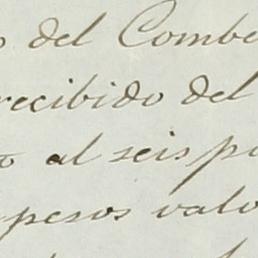 o del Combe
recibido del
to al seis po
pesos valo